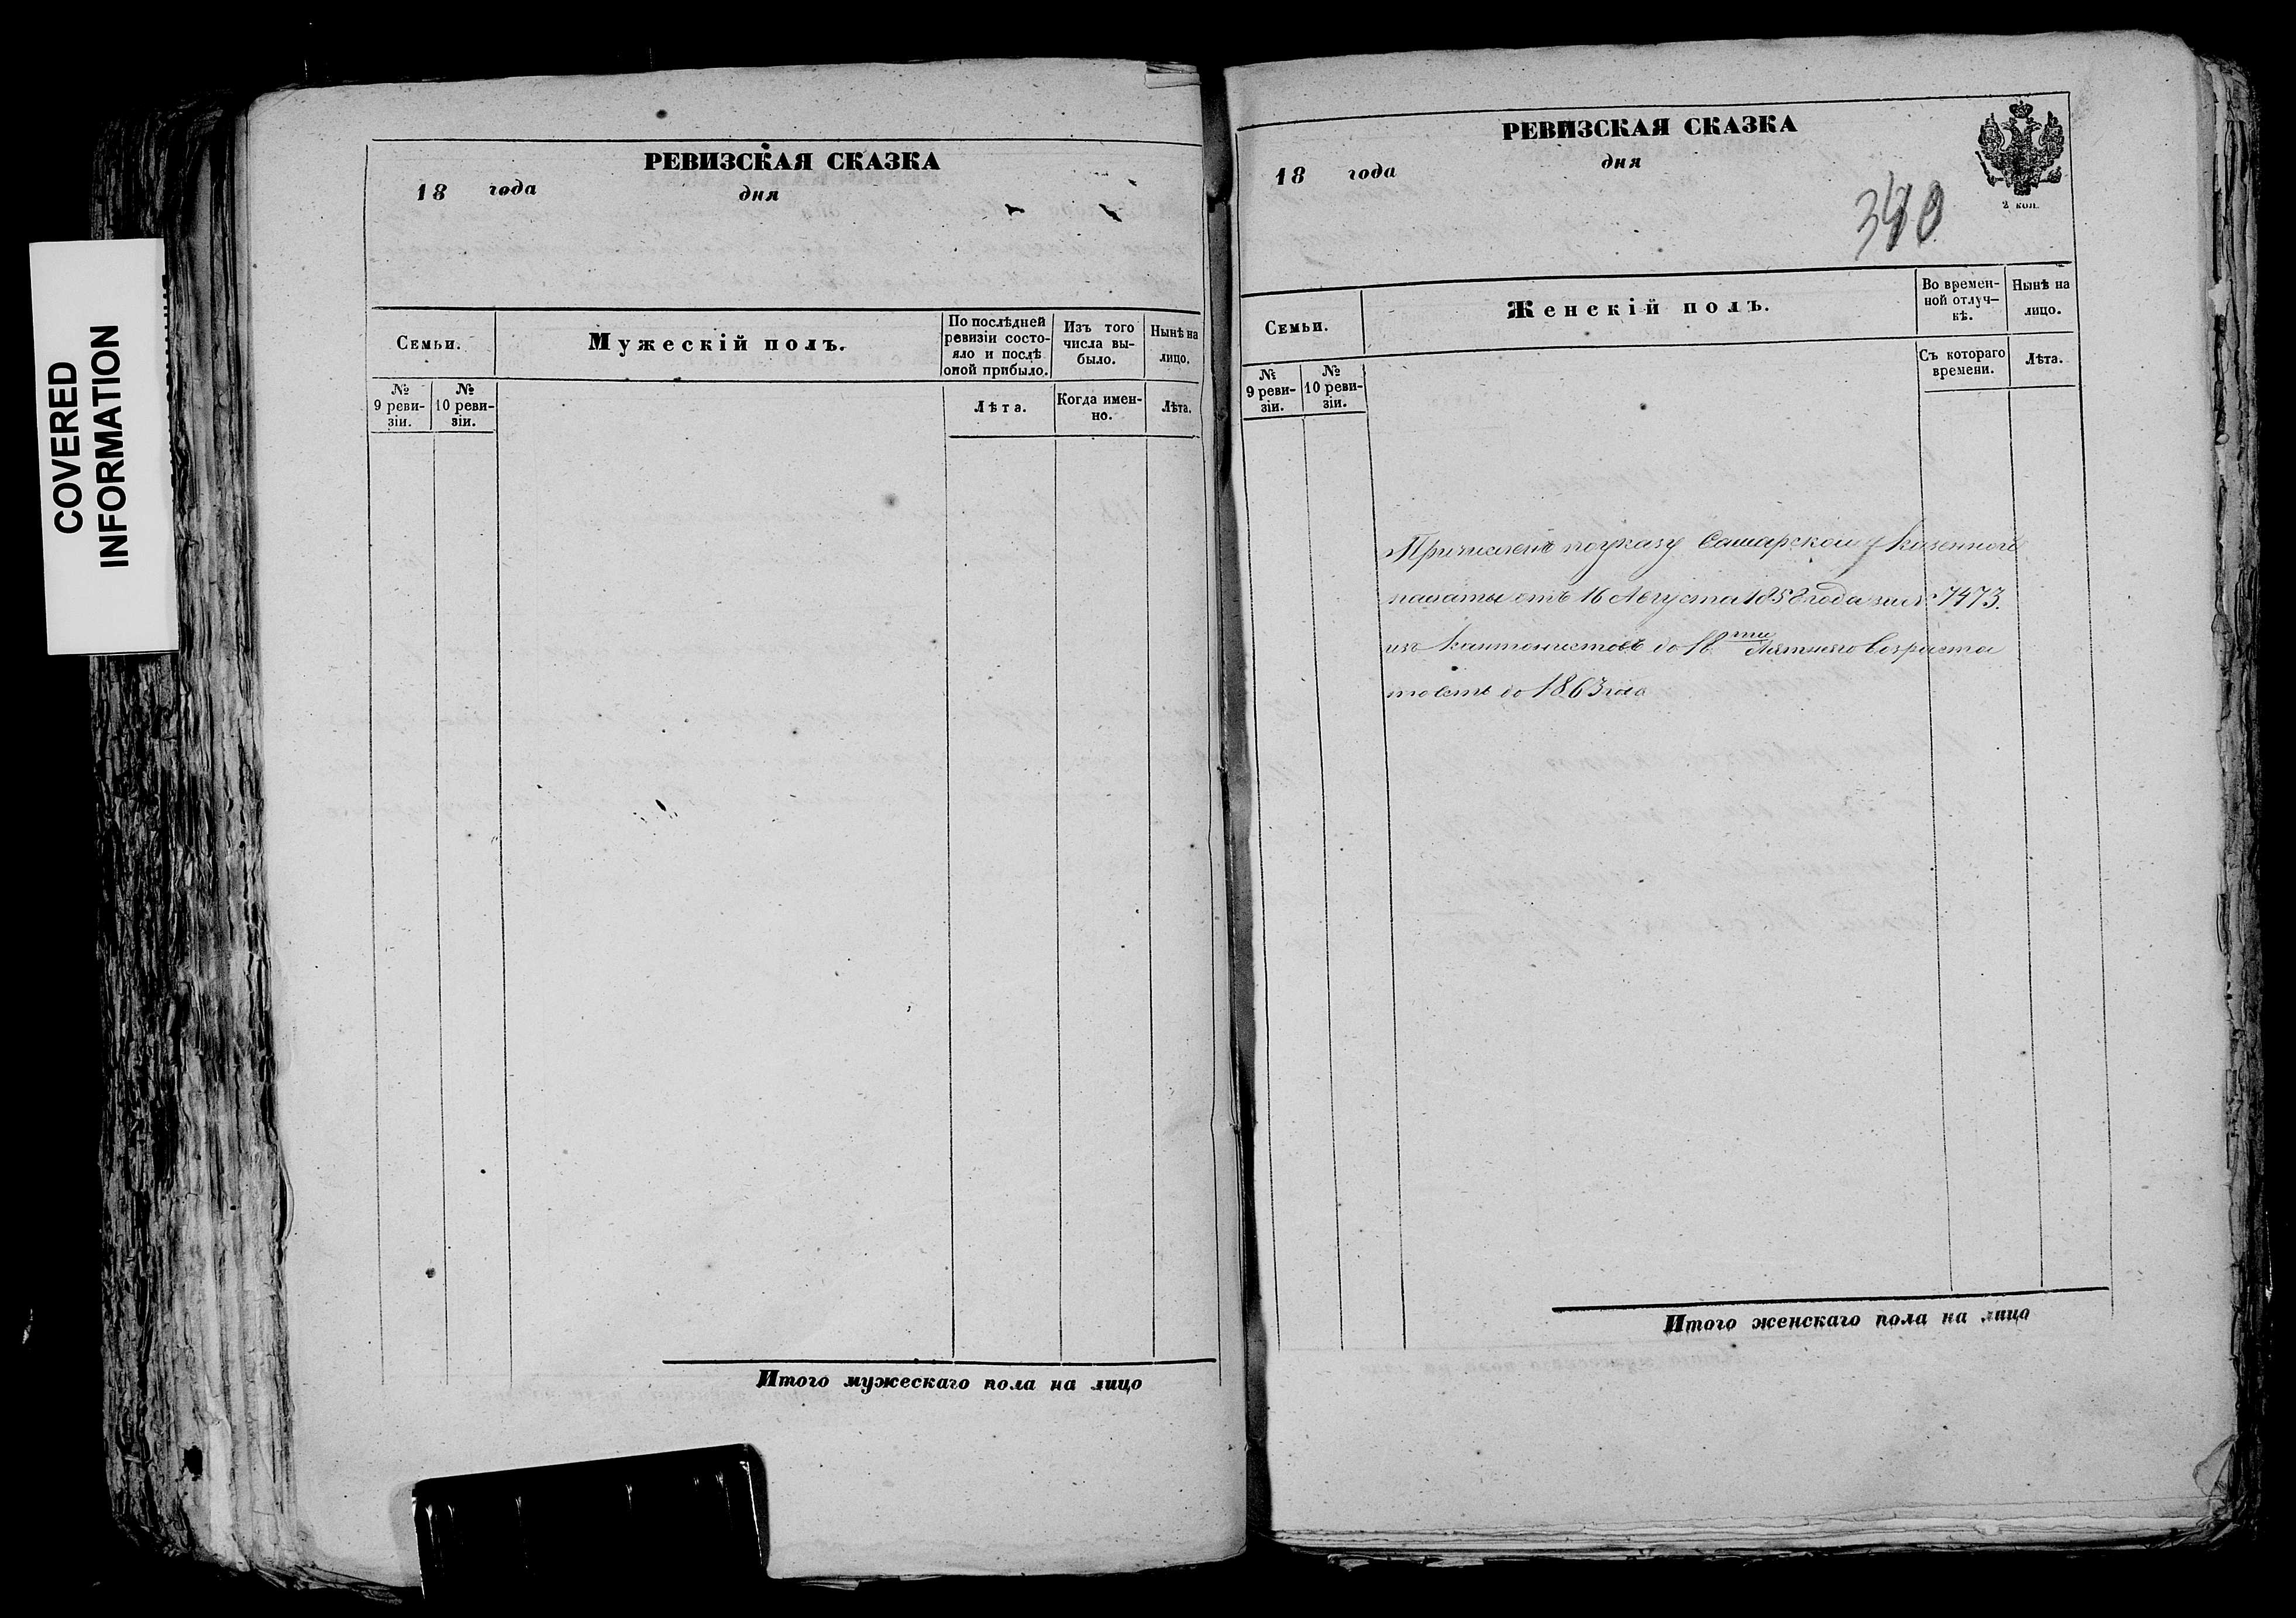 COVERED
INFORMATION
РЕВИЗСКАЯ СКАЗКА
18 года дня
Семьи.
Мужескій полъ.
По послѣдней
ревизіи состо-
яло и послѣ
оной прибыло.
Изъ того
числа вы-
было.
Нынѣ на
лицо.
№
9 реви-
зіи.
№
10 реви-
зіи.
Лѣта.
Когда имен-
но.
Лѣта.
Итого мужескаго пола на лицо
РЕВИЗСКАЯ СКАЗКА
18 года дня
2 коп.
Семьи.
Женскій полъ.
Во времен-
ной отлуч-
кѣ.
Нынѣ на
лицо.
№
9 реви-
зіи.
№
10 реви-
зіи.
Съ котораго
времени.
Лѣта.
Причисленъ по указу Самарской Казенной
палаты отъ 16 Августа 1858 года за № 7473.
изъ кантонистовъ до 18ти лѣтняго возраста
то есть до 1863 года
Итого женскаго пола на лицо